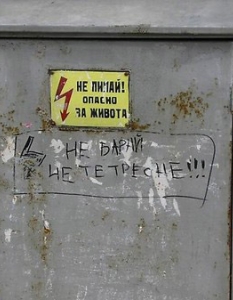 НЕ ПИПАЙ!
ОПАСНО
ЗА ЖИВОТА
НЕ БАРАЙ
НЕ ТЕ ТРЕСНЕ!!!